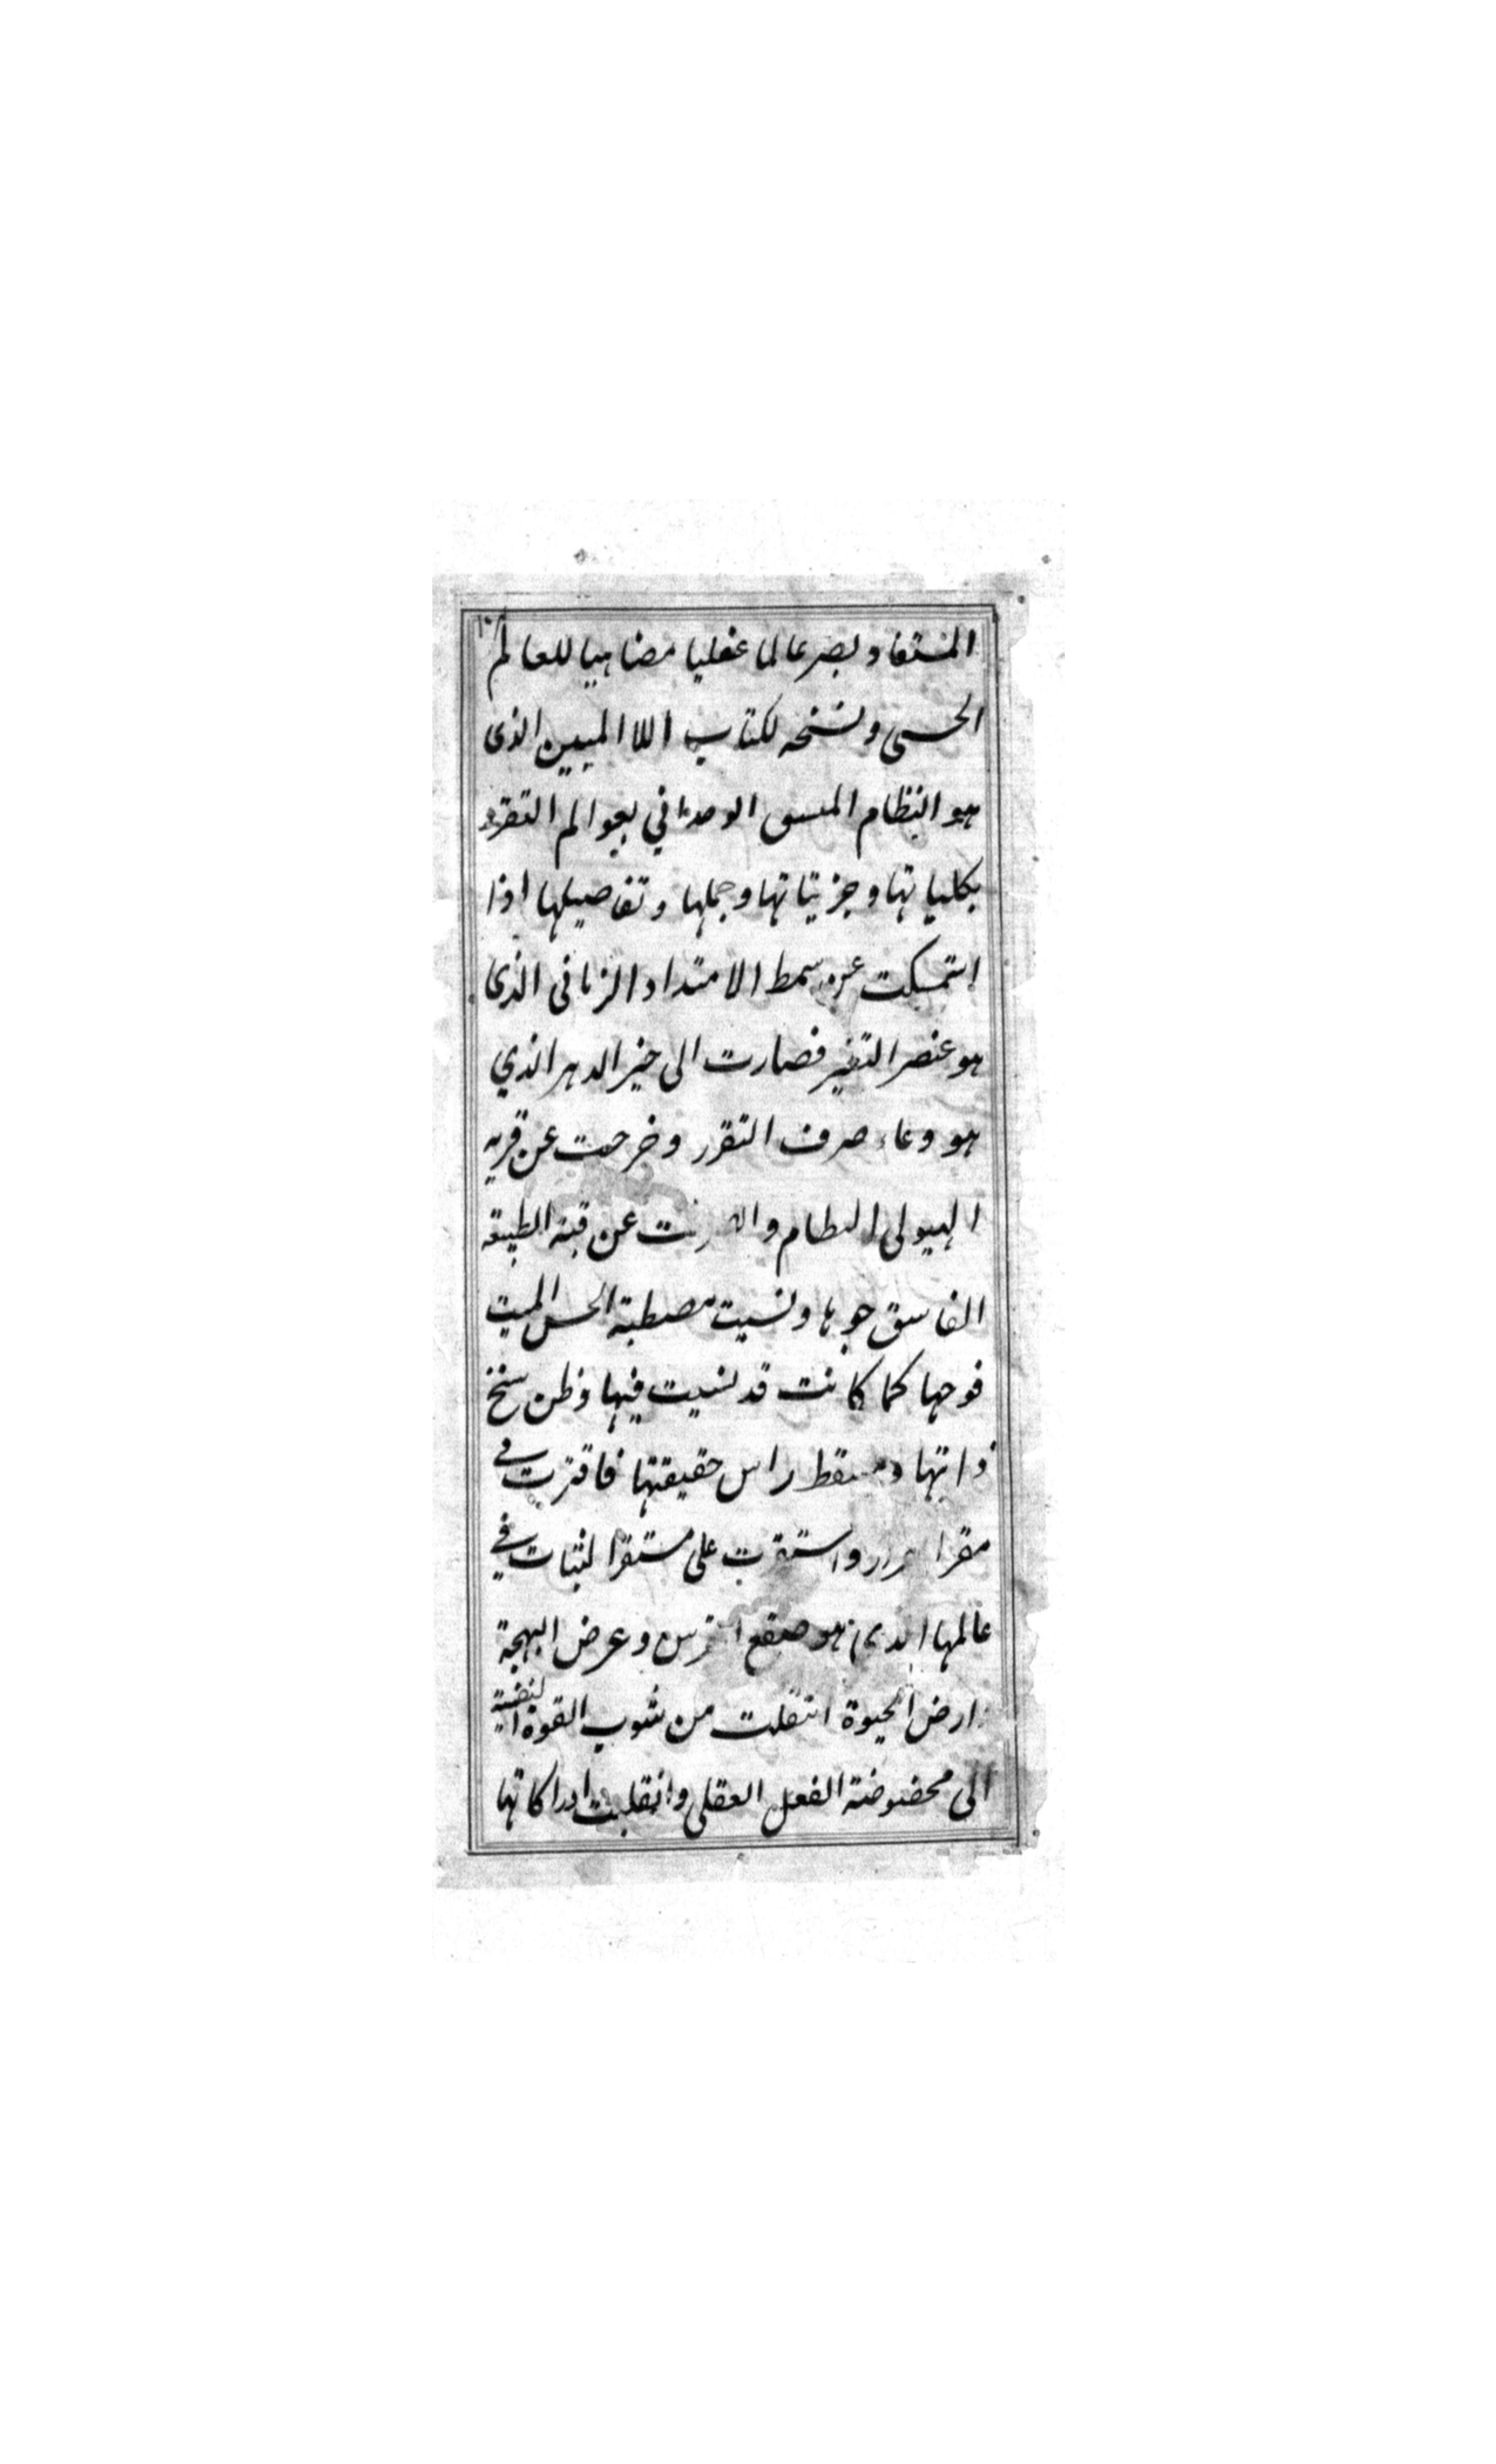 المستفاد ويصير عالما عقليا مضاهيا للعالم
الحسى ونسخه لكتاب الله المبين الذى
هو النظام الجملى الوحدانى لعوالم التقرر
بكلياتها وجزيئاتها وجملها وتفاصيلها اذا
استمسكت عن سمط الامتداد الزمانى الذى
هو عنصر التغير فصارت الى حيز الدهر الذي
هو وعاء صرف التقرر وخرجت عن قريه
الهيولى الظلام عن قبه الطبيعة
الفاسق جوها ونسيت مصطبة الحس الميت
فوحها كما كانت قد نسيت فيها وطن سنخ
ذاتها ومسقط راس حقيقتها فاقترت فى
مقر القرار واستقرت على مستقر الثبات في
عالمها الذى هو صقع القدس وعرض البهجة
وارض الحيوة انتقلت من شوب القوة النفسية
الى محضوضة الفعل العقلى وانقلبت ادراكاتها